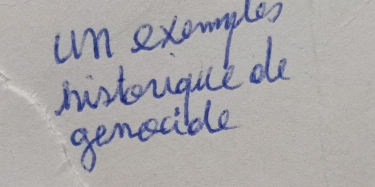 un exemples
historique de
genocide